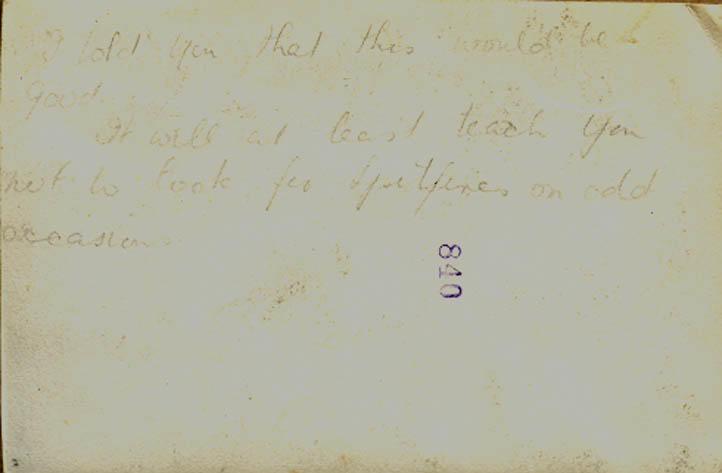 I told you that this would be
good.
It will at least teach you
not to look for Spitfires on odd
occasions
840